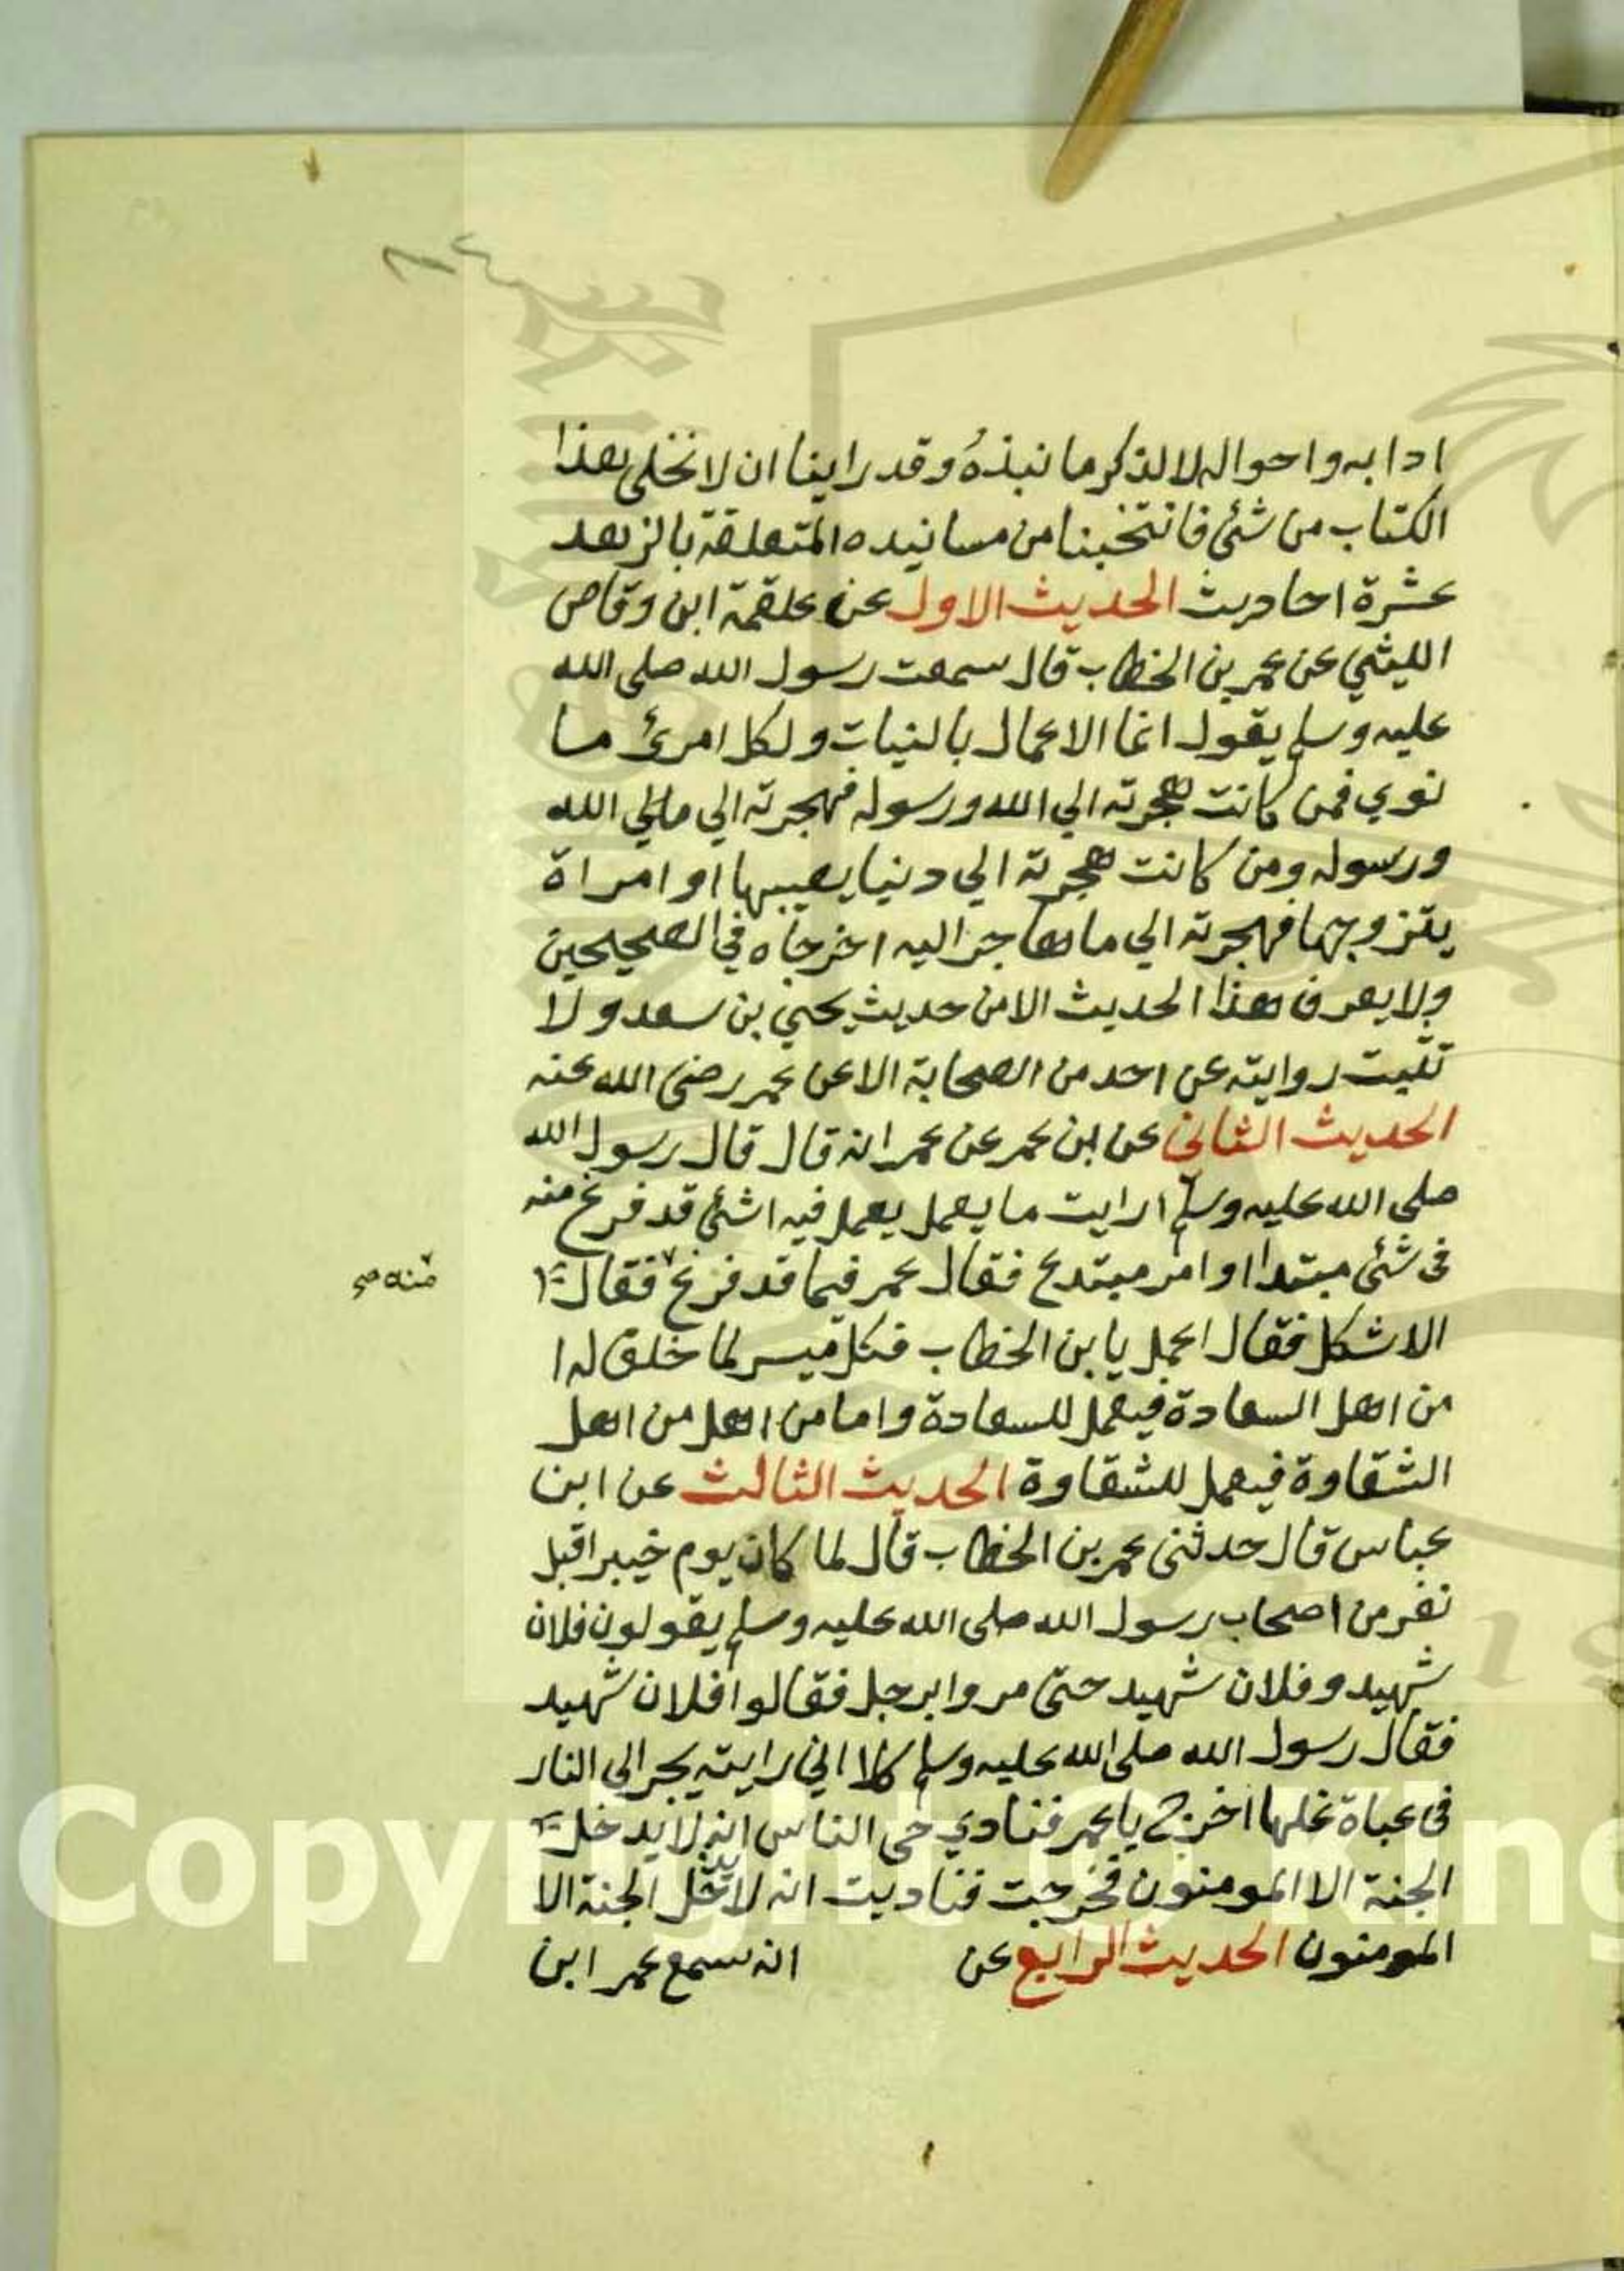 ادابه واحواله لالذكر ما نبذهُ وقد راينا ان لا نخلي هذا
الكتاب من شئ فانتخبنا من مسانيده المتعلقة بالزهد
عشرة احاديث الحديث الاول عن علقمة ابن وقاص
الليثي عن عمر بن الخطاب قال سمعت رسول الله صلى الله
عليه وسلم يقول انما الاعمال بالنيات ولكل امرئ ما
نوي فمن كانت هجرته الي الله ورسوله فهجرته الي ما الي الله
ورسوله ومن كانت هجرته الي دنيا يصيبها او امراة
يتزوجها فهجرته الي ما هاجر اليه اخرجاه في الصحيحين
ولا يعرف هذا الحديث الا من حديث يحيي بن سعد ولا
تثبت روايته عن احد من الصحابة الا عن عمر رضى الله عنه
الحديث الثانى عن ابن عمر عن عمر انه قال قال رسول الله
صلى الله عليه وسلم ارايت ما يعمل يعمل فيه اشئ قد فرغ منه
فى شئ مبتدا او امر مبتدع فقال عمر فيما قد فرغ فقال
منه صح
الاشكل فقال اعمل يا بن الخطاب فكل ميسر لما خلق له ا
من اهل السعادة فيعمل للسعادة واما من اهل من اهل
الشقاوة فيعمل للشقاوة الحديث الثالث عن ابن
عباس قال حدثنى عمر بن الخطاب قال لما كان يوم خيبر اقبل
نفر من اصحاب رسول الله صلى الله عليه وسلم يقولون فلان
شهيد وفلان شهيد حتى مروا برجل فقالوا فلان شهيد
فقال رسول الله صلى الله عليه وسلم كلا اني رايته يجر الى النار
فى عباة غلها اخرج يا عمر فنادي فى الناس انه لا يدخل
الجنة الا المومنون فخرجت فناديت انه لا يدخل الجنة الا
المومنون الحديث الرابع عن انه سمع عمر ابن
Copyright © King